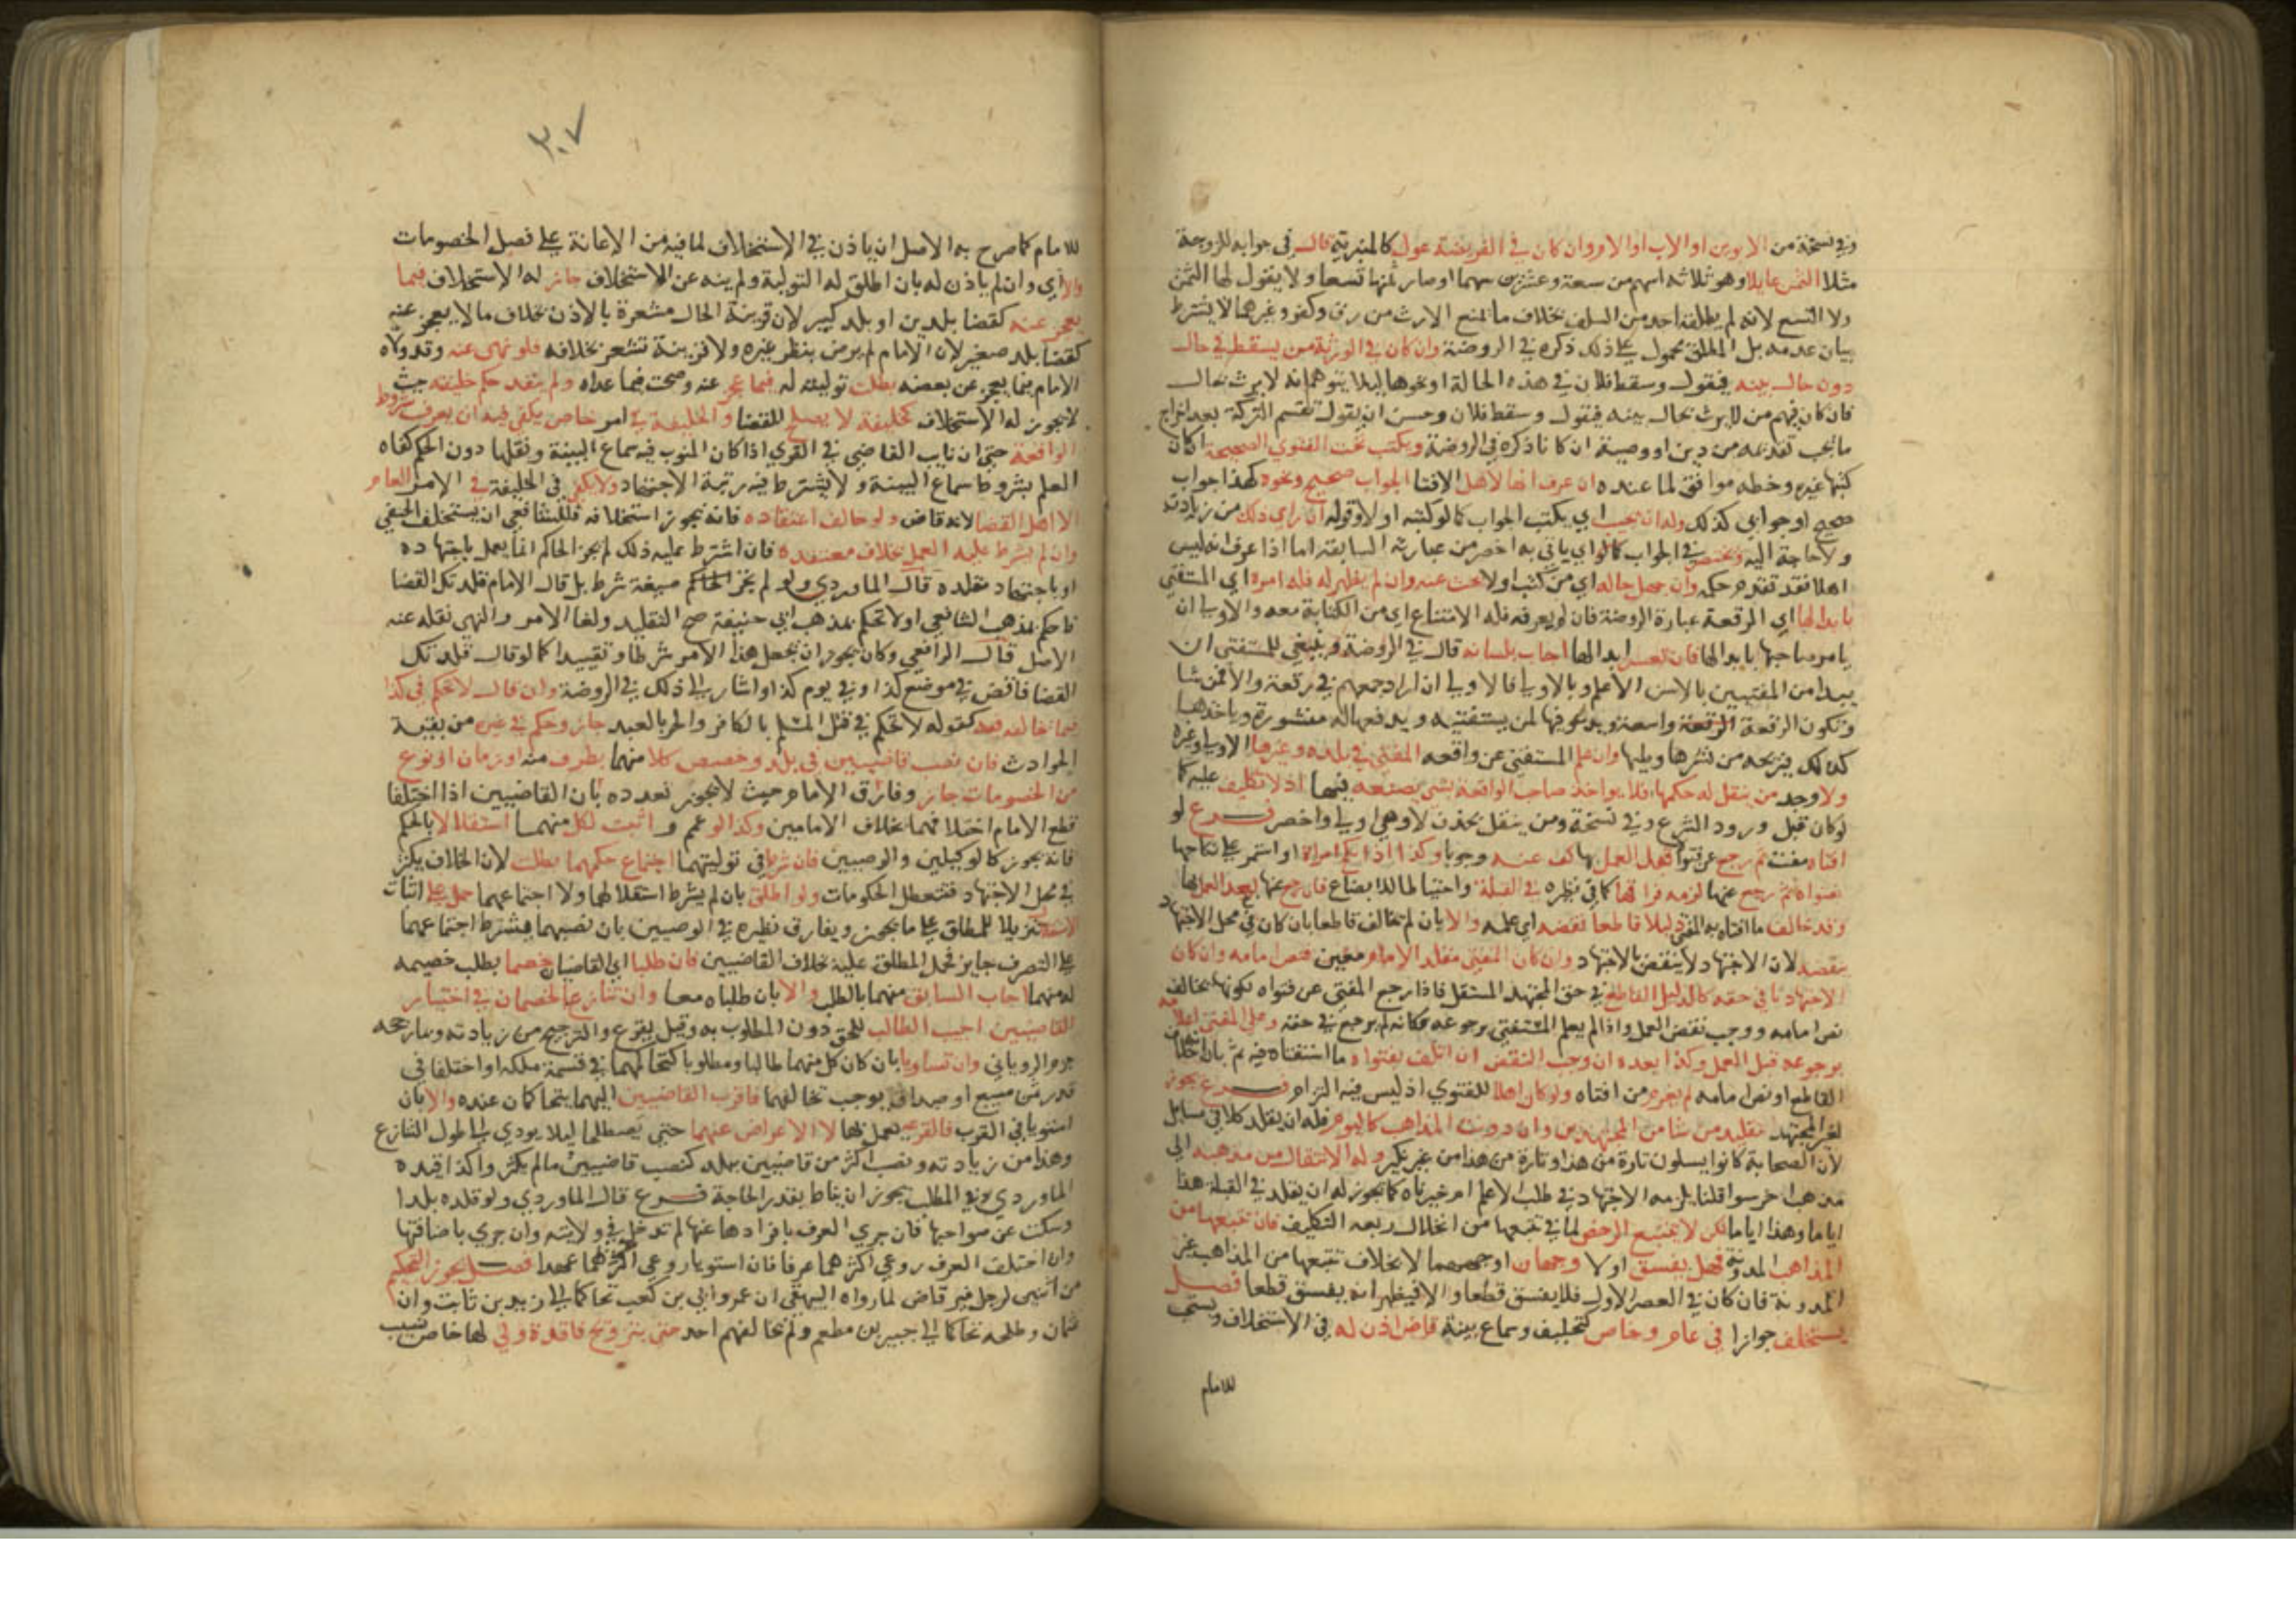 وفي نسخة من الابوين او الاب او الام وان كان في الفريضة عول كالمنبرية قال في جوابه للزوجة
مثلا الثمن عايلا وهو ثلاثة اسهم من سبعة وعشرين سهما او صار ثمنها تسعا ولا يقول لها الثمن
ولا التسع لانه لم يطلقه احد من السلف بخلاف ما يمنع الارث من رق وكفر وغيرهما لا يشترط
بيان عدمه بل المطلق محمول على ذلك ذكره في الروضة وان كان في الورثة من يسقط في حال
دون حال بينه فيقول وسقط فلان في هذه الحالة او نحوها ليلا يتوهم انه لا يرث بحال
فان كان فيهم من لا يرث بحال بينه فيقول وسقط فلان وحسن ان يقول تقسم التركة بعد اخراج
ما يجب تقديمه من دين او وصية ان كانا ذكره في الروضة ويكتب تحت الفتوي الصحيحة ان كان
كتبها غيره وخطه موافق لما عنده ان عرف انها لاهل الافتا الجواب صحيح ونحوه كهذا جواب
صحيح او جوابي كذلك وله ان يجيب اي يكتب الجواب كما لو كتبه اولا وقوله ان راي ذلك من زيادته
ولا حاجة اليه ويختصر في الجواب كالو اي ياتي به اخصر من عبارته السابقة اما اذا عرف انه ليس
اهلا فقد تقدم حكمه وان جهل حاله اي من كتب اولا بحث عنه وان لم يظهر له فله امره اي المستفتي
بابدالها اي الرقعة عبارة الروضة فان لم يعرفه فله الامتناع اي من الكتابة معه والاولى ان
يامر صاحبها بابدالها فان تعسر ابدالها اجاب بلسانه قال في الروضة وينبغي للمستفتي ان
يبدا من المفتيين بالاسن الاعلم وبالاولى فالاولى ان اراد جمعهم في رقعة والا فمن شا
وتكون الرقعة الرقعة واسعة ويدعو فيها لمن يستفتيه ويدفعها له منشورة وياخذها
كذلك فيريحه من نشرها وطيها وان علم المستفتي عن واقعه المفتي في بلده وغيرها الاولى وغيره
ولا وجد من ينقل له حكمها فلا يواخذ صاحب الواقعة بشي يصنعه فيها اذ لا تكليف عليه كما
لو كان قبل ورود الشرع وفي نسخة ومن ينقل بحذف لا وهي اولى واخصر فرع لو
افتاه مفت ثم رجع عن فتواه قبل العمل بها كف عنه وجوبا وكذا اذا نكح امراة او استمر على نكاحها
بفتواه ثم رجع عنها لزمه فراقها كما في نظيره في القبلة واحتياطا للابضاع فان رجع عنها بعد العمل بها
وقد خالف ما افتاه به المفتي دليلا قاطعا نقضه اي عمله والا بان لم يخالف قاطعا بان كان في محل الاجتهاد
ينقضه لان الاجتهاد لا ينقض بالاجتهاد وان كان المفتي مقلد الامام معين فنص امامه وان كان
الاجتهاديا في حقه كالدليل القاطع في حق المجتهد المستقل فاذا رجع المفتي عن فتواه لكونها بخالف
نص امامه ووجب نقض العمل واذا لم يعلم المستفتي برجوعه فكانه لم يرجع في حقه وعلى المفتي اعلامه
برجوعه قبل العمل وكذا بعده ان وجب النقض ان اتلف بفتواه ما استفتاه فيه ثم بان خلاف
القاطع او نص امامه لم يغرم من افتاه ولو كان اهلا للفتوي اذ ليس فيه الزام فرع يجوز
لغير المجتهد تقليد من شا من المجتهدين وان دونت المذاهب كاليوم فله ان يقلد كلا في مسايل
لان الصحابة كانوا يسلون تارة من هذا وتارة من هذا من غير نكير وله الانتقال من مذهبه الى
مذهب اخر سوا قلنا يلزمه الاجتهاد في طلب الاعلم ام خيرناه كما يجوز له ان يقلد في القبلة هذا
اياما وهذا اياما لكن لا يتتبع الرخص لما في تتبعها من انحلال ربقة التكليف فان تتبعها من
المذاهب المدونة فهل يفسق اولا وجهان اوجههما لا بخلاف تتبعها من المذاهب غير
المدونة فان كان في العصر الاول فلا يفسق قطعا والا فيظهر انه يفسق قطعا فصل
يستخلف جوازا في عام وخاص كتحليف وسماع بينة قاض اذن له في الاستخلاف ويستحب
للامام
٣٠٧
للامام كما صرح به الاصل ان ياذن في الاستخلاف لما فيه من الاعانة على فصل الخصومات
والا اي وان لم ياذن له بان اطلق له التولية ولم ينه عن الاستخلاف جاز له الاستخلاف فيما
يعجز عنه كقضا بلدين او بلد كبير لان قرينة الحال مشعرة بالاذن بخلاف ما لا يعجز عنه
كقضا بلد صغير لان الامام لم يرض بنظر غيره ولا قرينة تشعر بخلافه فلو نهى عنه وقد ولاه
الامام فيما يعجز عن بعضه بطلت توليته له فيما عجز عنه وصحت فيما عداه ولم ينفذ حكم خليفته حيث
لا يجوز له الاستخلاف كخليفة لا يصلح للقضا والخليفة في امر خاص يكفي فيه ان يعرف شروط
الواقعة حتى ان نايب القاضي في القري اذا كان المنوب فيه سماع البينة ونقلها دون الحكم كفاه
العلم بشروط سماع البينة ولا يشترط فيه رتبة الاجتهاد ولا يكفي في الخليفة في الامر العام
الا اهل القضا لانه قاض ولو خالف اعتقاده فانه يجوز استخلافه فللشافعي ان يستخلف الحنفي
وان لم يشرط عليه العمل بخلاف معتقده فان اشترط عليه ذلك لم يجز الحاكم انما يعمل باجتهاده
او باجتهاد مقلده قال الماوردي ولو لم تجز الحاكم صيغة شرط بل قال الامام قلدتك القضا
فاحكم بمذهب الشافعي او لا تحكم بمذهب ابي حنيفة صح التقليد ولغا الامر والنهي نقله عنه
الاصل قال الرافعي وكان يجوز ان يجعل هذا الامر شرطا وتقييدا كما لو قال قلدتك
القضا فاقض في موضع كذا او في يوم كذا واشار الى ذلك في الروضة وان قال لا تحكم في كذا
فيما خالفه فيه كقوله لا تحكم في قتل المسلم بالكافر والحر بالعبد جاز وحكم في غيره من بقية
الحوادث فان نصب قاضيين في بلد وخصص كلا منهما بطرف منه او زمان او نوع
من الخصومات جاز وفارق الامام حيث لا يجوز تعدده بان القاضيين اذا اختلفا
قطع الامام اختلافهما بخلاف الامامين وكذا لو عمم واثبت لكل منهما استقلالا بالحكم
فانه يجوز كالوكيلين والوصيين فان شرط في توليتهما اجتماع حكمهما بطلت لان الخلاف يكثر
في محل الاجتهاد فتتعطل الحكومات ولو اطلق بان لم يشرط استقلالهما ولا اجتماعهما حمل على اثبات
الاستقلال تنزيلا للمطلق على ما يجوز ويفارق نظيره في الوصيين بان نصبهما بشرط اجتماعهما
على التصرف جايز فحمل المطلق عليه بخلاف القاضيين فان طلبا اي القاضيان خصما بطلب خصيمه
له منهما اجاب السابق منهما بالطلب والا بان طلباه معا وان تنازع الخصمان في اختيار
القاضيين اجيب الطالب للحق دون المطلوب به وقيل يقرع والترجيح من زيادته وما رجحه
جزم الروياني وان تساويا بان كان كل منهما طالبا ومطلوبا كتحاكمهما في قسمة ملكه او اختلفا في
قدر ثمن مبيع او صداق يوجب تحالفهما فاقرب القاضيين اليهما يتحاكمان عنده والا بان
استويا في القرب فالقرعة يعمل بها لا الاعراض عنهما حتى يصطلحا ليلا يودي الى طول التنازع
وهذا من زيادته ونصب اكثر من قاضيين ببلد كنصب قاضيين ما لم يكثروا كذا قيده
الماوردي وفي المطلب يجوز ان يناط بقدر الحاجة فرع قال الماوردي ولو قلده بلدا
وسكت عن ضواحيها فان جري العرف بافرادها عنها لم تدخل في ولايته وان جري باضافتها
وان اختلف العرف روعي اكثرهما عرفا فان استويا روعي اكثرهما عهدا فصل يجوز التحكيم
من اثنين لرجل غير قاض لما رواه البيهقي ان عمر وابي بن كعب تحاكما الى زيد بن ثابت وان
عثمان وطلحة تحاكما الى جبير بن مطعم ولم يخالفهم احد حتى بتزويج فاقدة ولي لها خاص نسيب